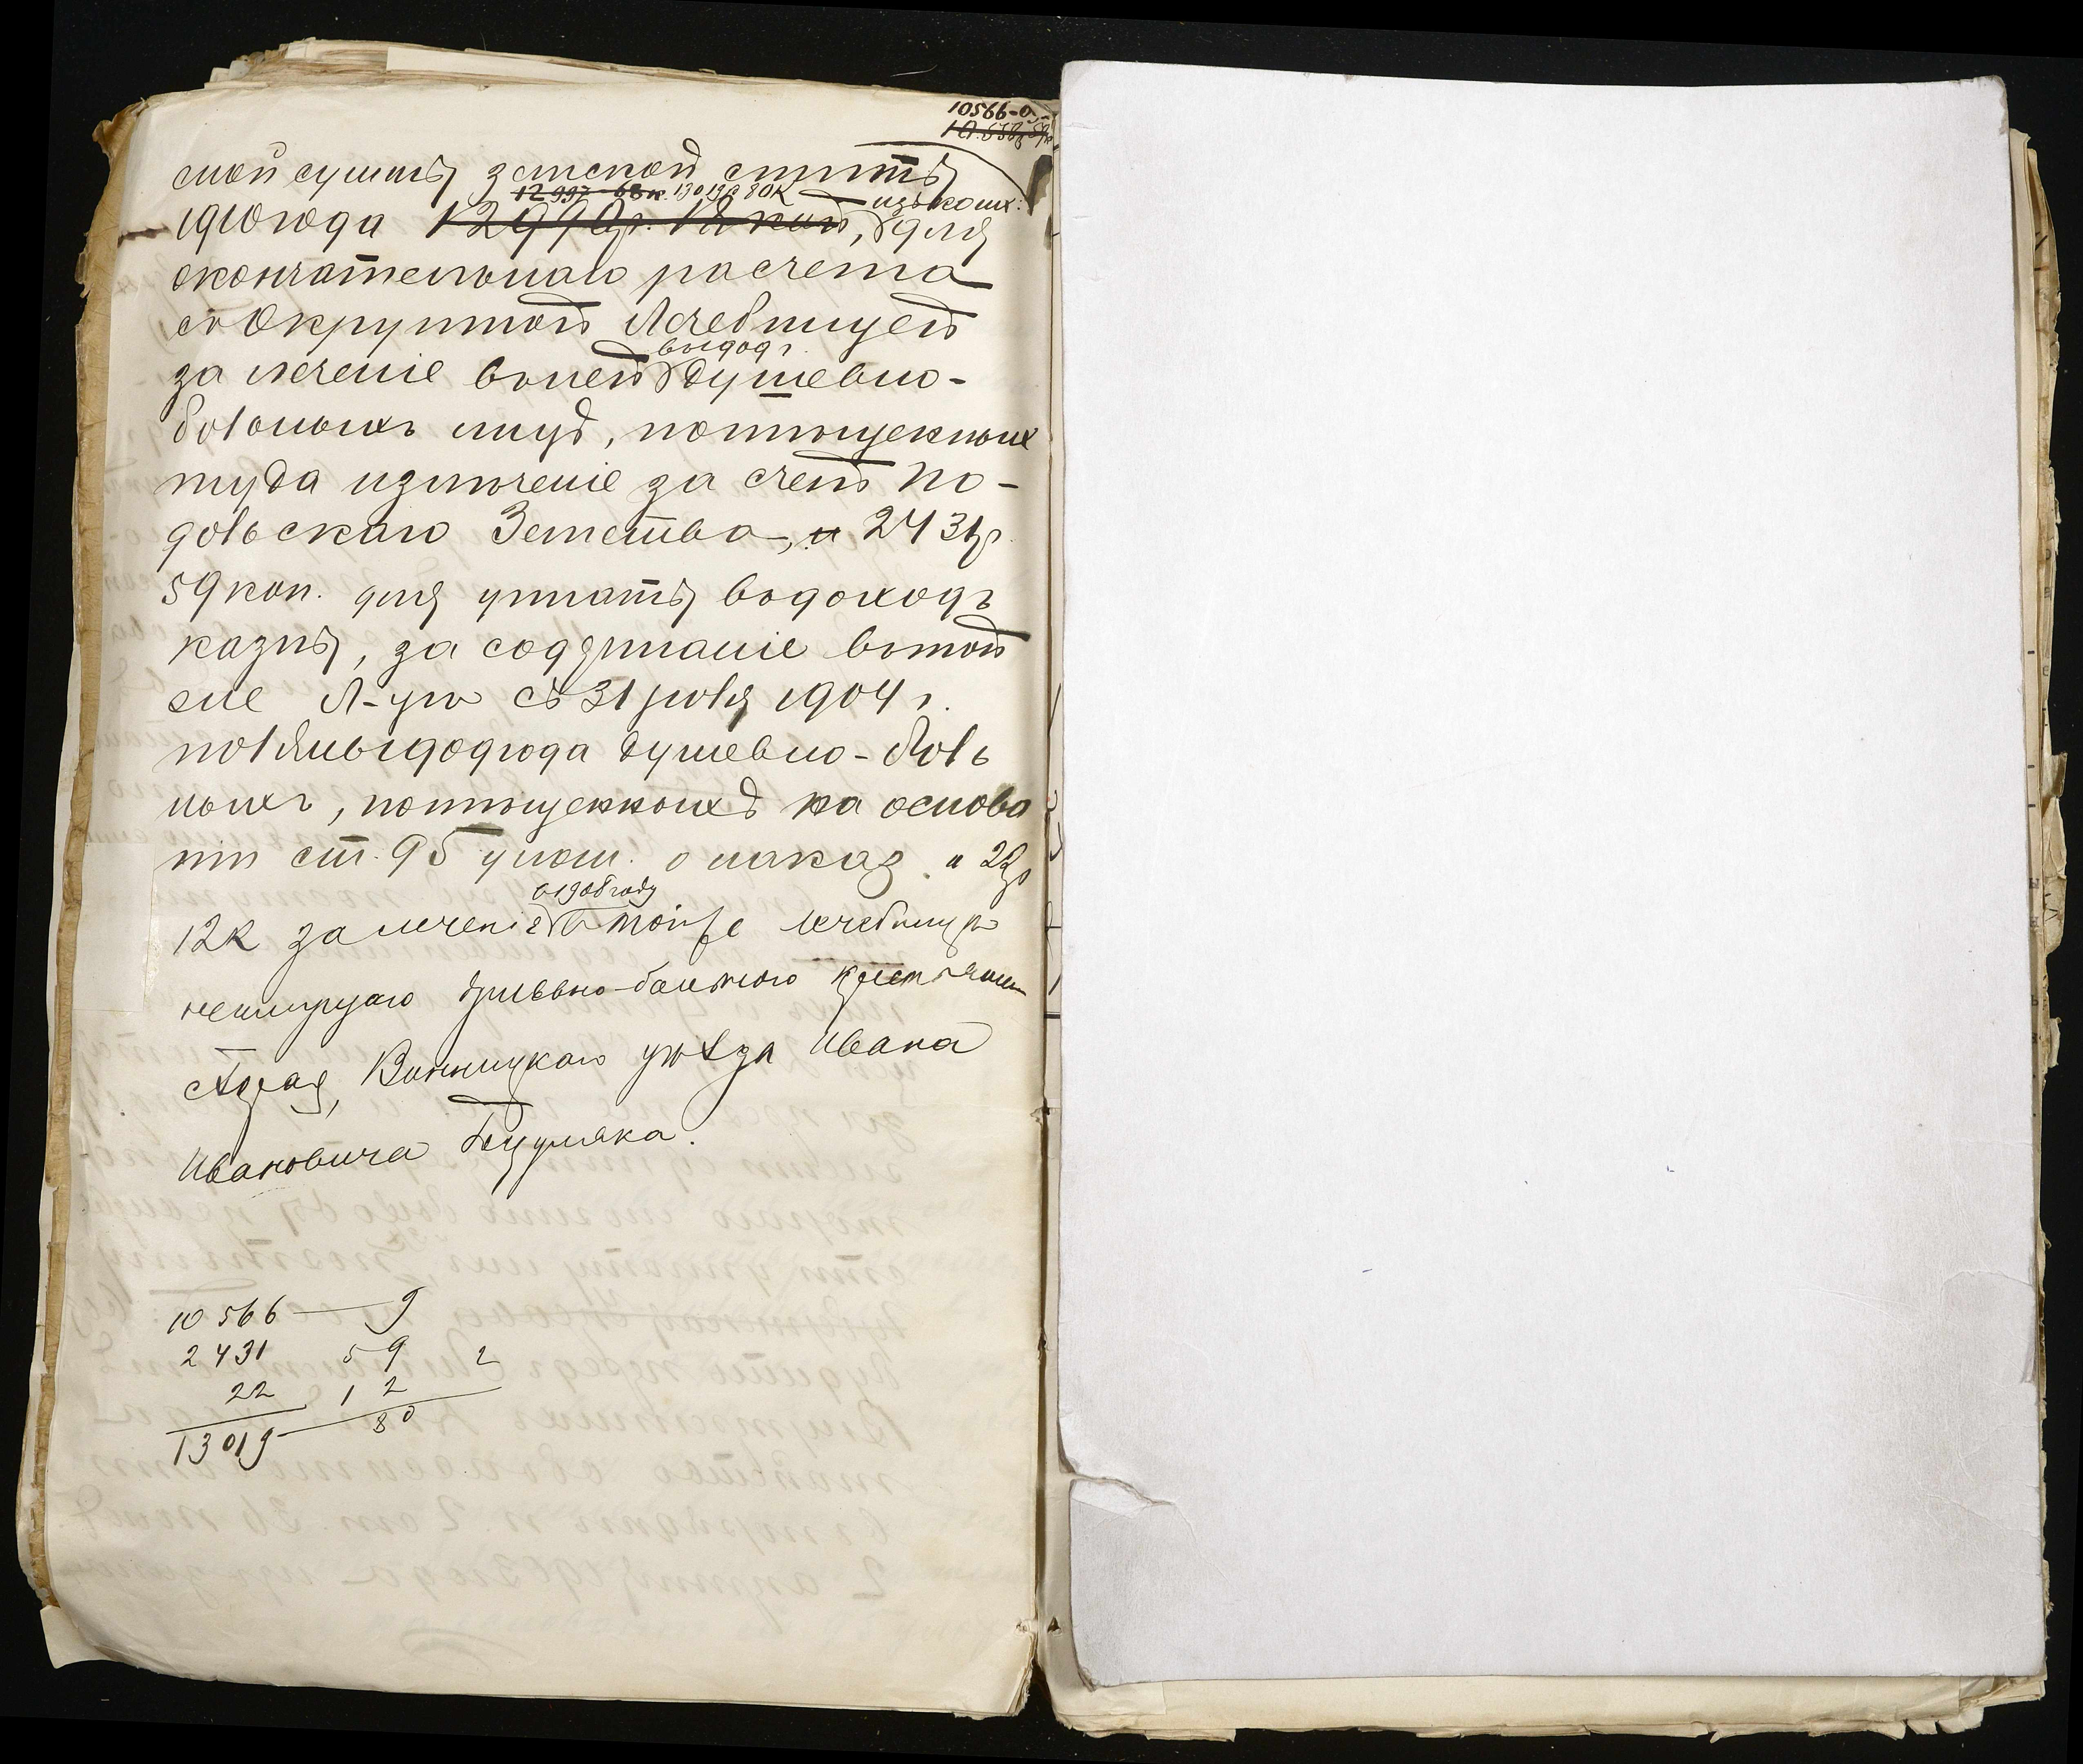 10566-9
сной суммы земской смѣты
12997 68 к. 13019 р 80 к изъ коих:
1910 года 12990 р. 18 коп, для
окончательнаго расчета
съ Окружной Лечебницей
за леченіе въ ней душевно-
больныхъ лицъ, помѣщенныхъ
туда излеченіе за счетъ По-
дольскаго Земства, и 2431 р.
59 коп. для уплаты въ доходъ
казны, за содержаніе въ той
же Л-цѣ съ 31 июля 1904 г.
по 1 Января года душевно-боль
ныхъ, помѣщенныхъ на основа
ніи ст. 95 улож. о наказ. и 22 р
в 1908 году
12 к за леченіе в той же лечебницѣ
душевно-больного крестьянина
Винницкаго уѣзда Ивана
Ивановича
10 566 — 9
2 431 59 2
22 12
13019 — 80